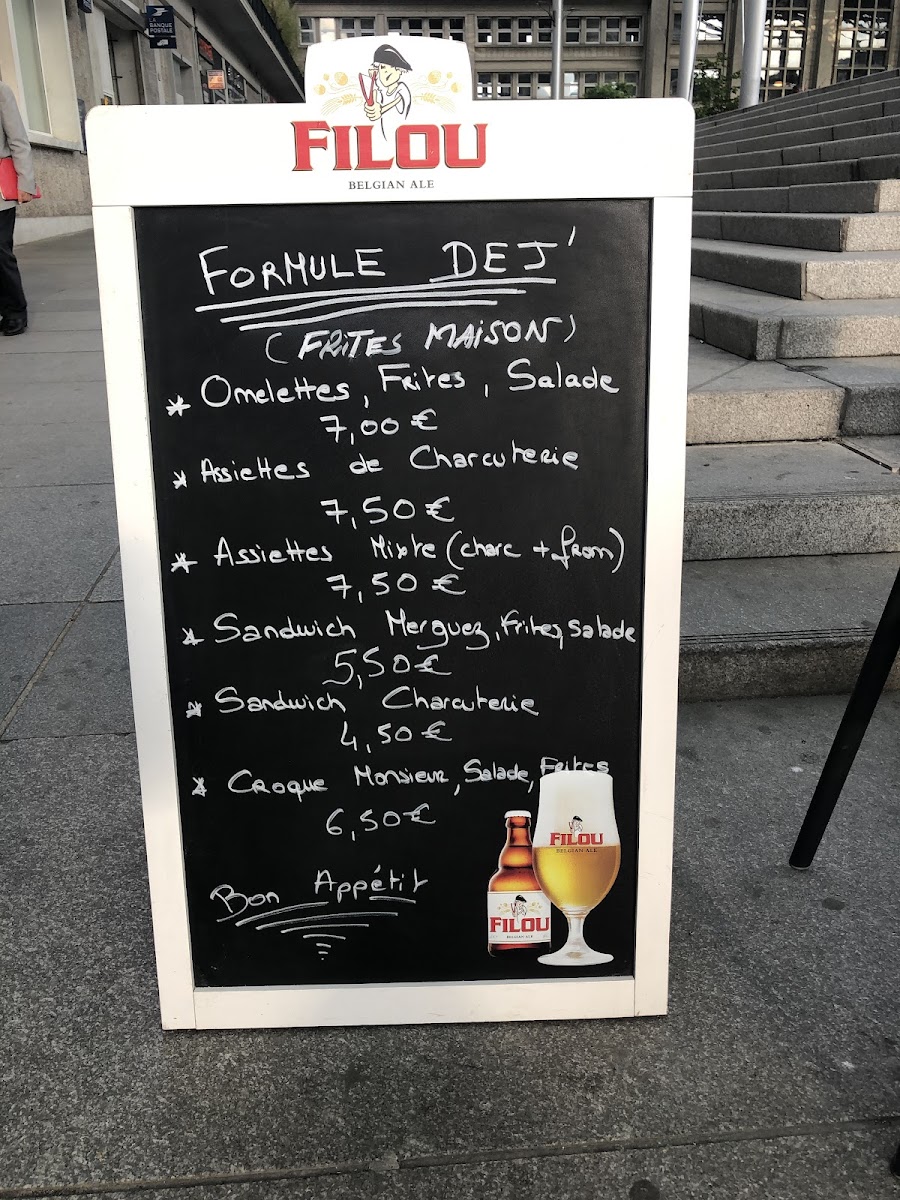 LA
BANQUE
POSTALE
FILOU
BELGIAN ALE
FORMULE DEJ'
(FRITES MAISON)
* Omelettes, Frites, Salade
7,00 €
* Assiettes de Charcuterie
7,50 €
* Assiettes Mixte (charc + from)
7,50 €
* Sandwich Merguez, frites, salade
5,50 €
* Sandwich Charcuterie
4,50 €
* Croque Monsieur, Salade, Frites
6,50 €
Bon Appétit
FILOU
BELGIAN ALE
FILOU
BELGIAN ALE